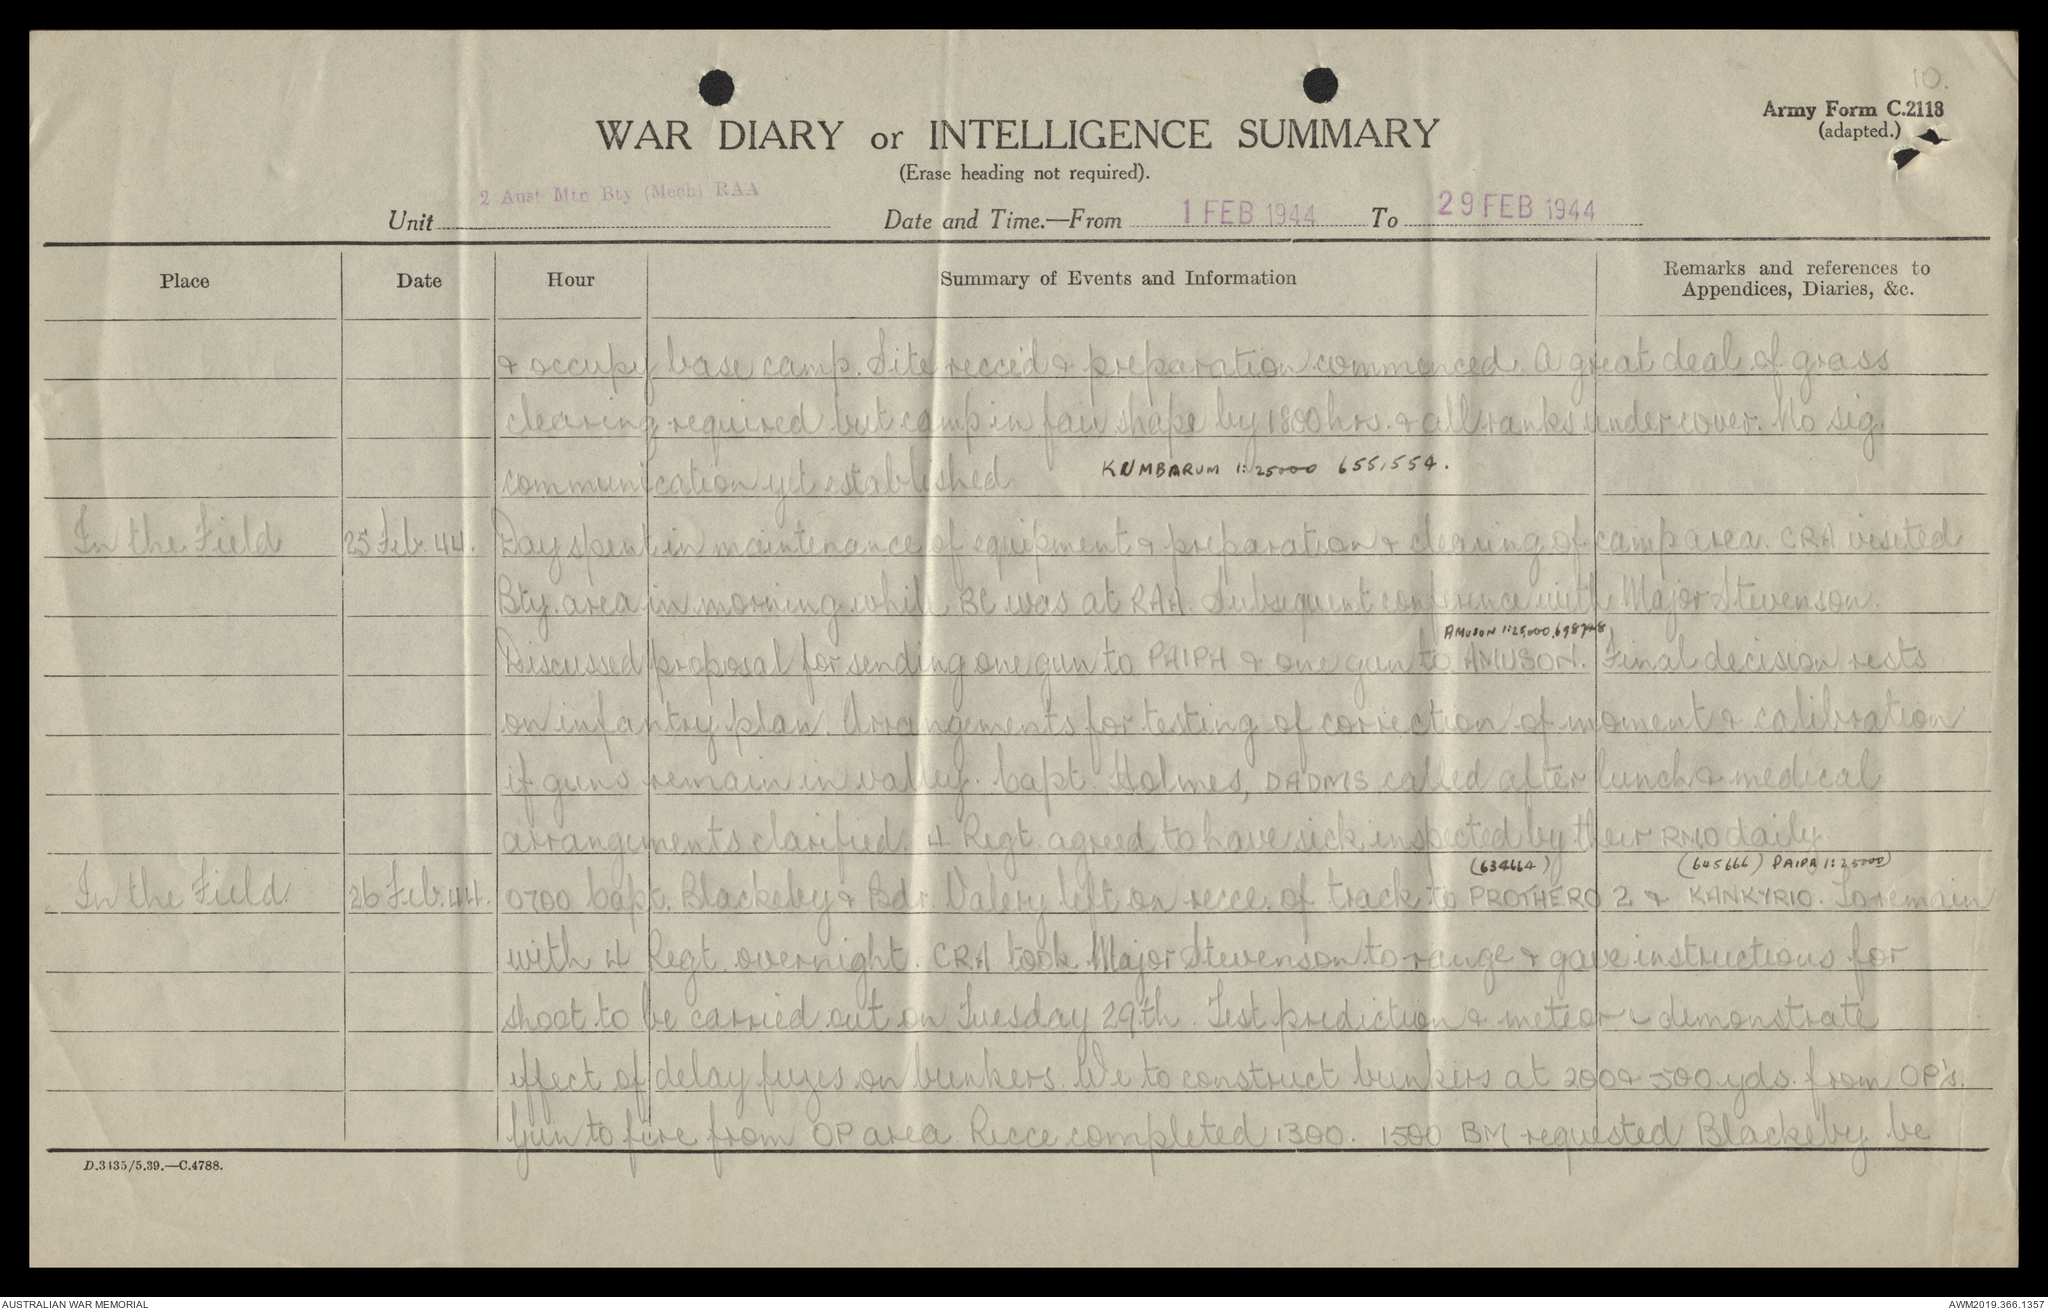 10.
Army Form C.2118
(adapted.)
WAR DIARY or INTELLIGENCE SUMMARY
(Erase heading not required).
Unit 2 Aust Mtn Bty (Mech) RAA Date and Time.—From 1 FEB 1944 To 29 FEB 1944
Place Date Hour Summary of Events and Information Remarks and references to
Appendices, Diaries, &c.
& occupy base camp. Site recced & preparation commenced. A great deal of grass
clearing required but camp in fair shape by 1800 hrs. & all ranks under cover. No sig.
communication yet established KUMBARUM 1:25000 655,554.
In the Field 25 Feb. 44. Day spent in maintenance of equipment & preparation & clearing of camp area. CRA visited
Bty. area in morning while BC was at RAA. Subsequent conference with Major Stevenson.
AMUSON 1:25,000,
Discussed proposal for sending one gun to PAIPA & one gun to AMUSON. Final decision rests
on infantry plan. Arrangements for testing of correction of moment & calibration
if guns remain in valley. Capt. Holmes, DADMS called after lunch & medical
arrangements clarified. 4 Regt. agreed to have sick inspected by their RMO daily.
(634664) (645666) PAIPA 1:25000)
In the Field 26 Feb. 44. 0700 Capt. Blackeby & Bdr Valery left on recce. of track to PROTHERO 2 & KANKYRIO. To remain
with 4 Regt. overnight. CRA took Major Stevenson to range & gave instructions for
shoot to be carried out on Tuesday 29th. Test prediction & meteor & demonstrate
effect of delay fuzes on bunkers. We to construct bunkers at 200 & 500 yds. from OP's.
Gun to fire from OP area. Recce completed 1300. 1500 BM requested Blackeby be
D.3435/5.39.—C.4788.
AUSTRALIAN WAR MEMORIAL
AWM2019.366.1357